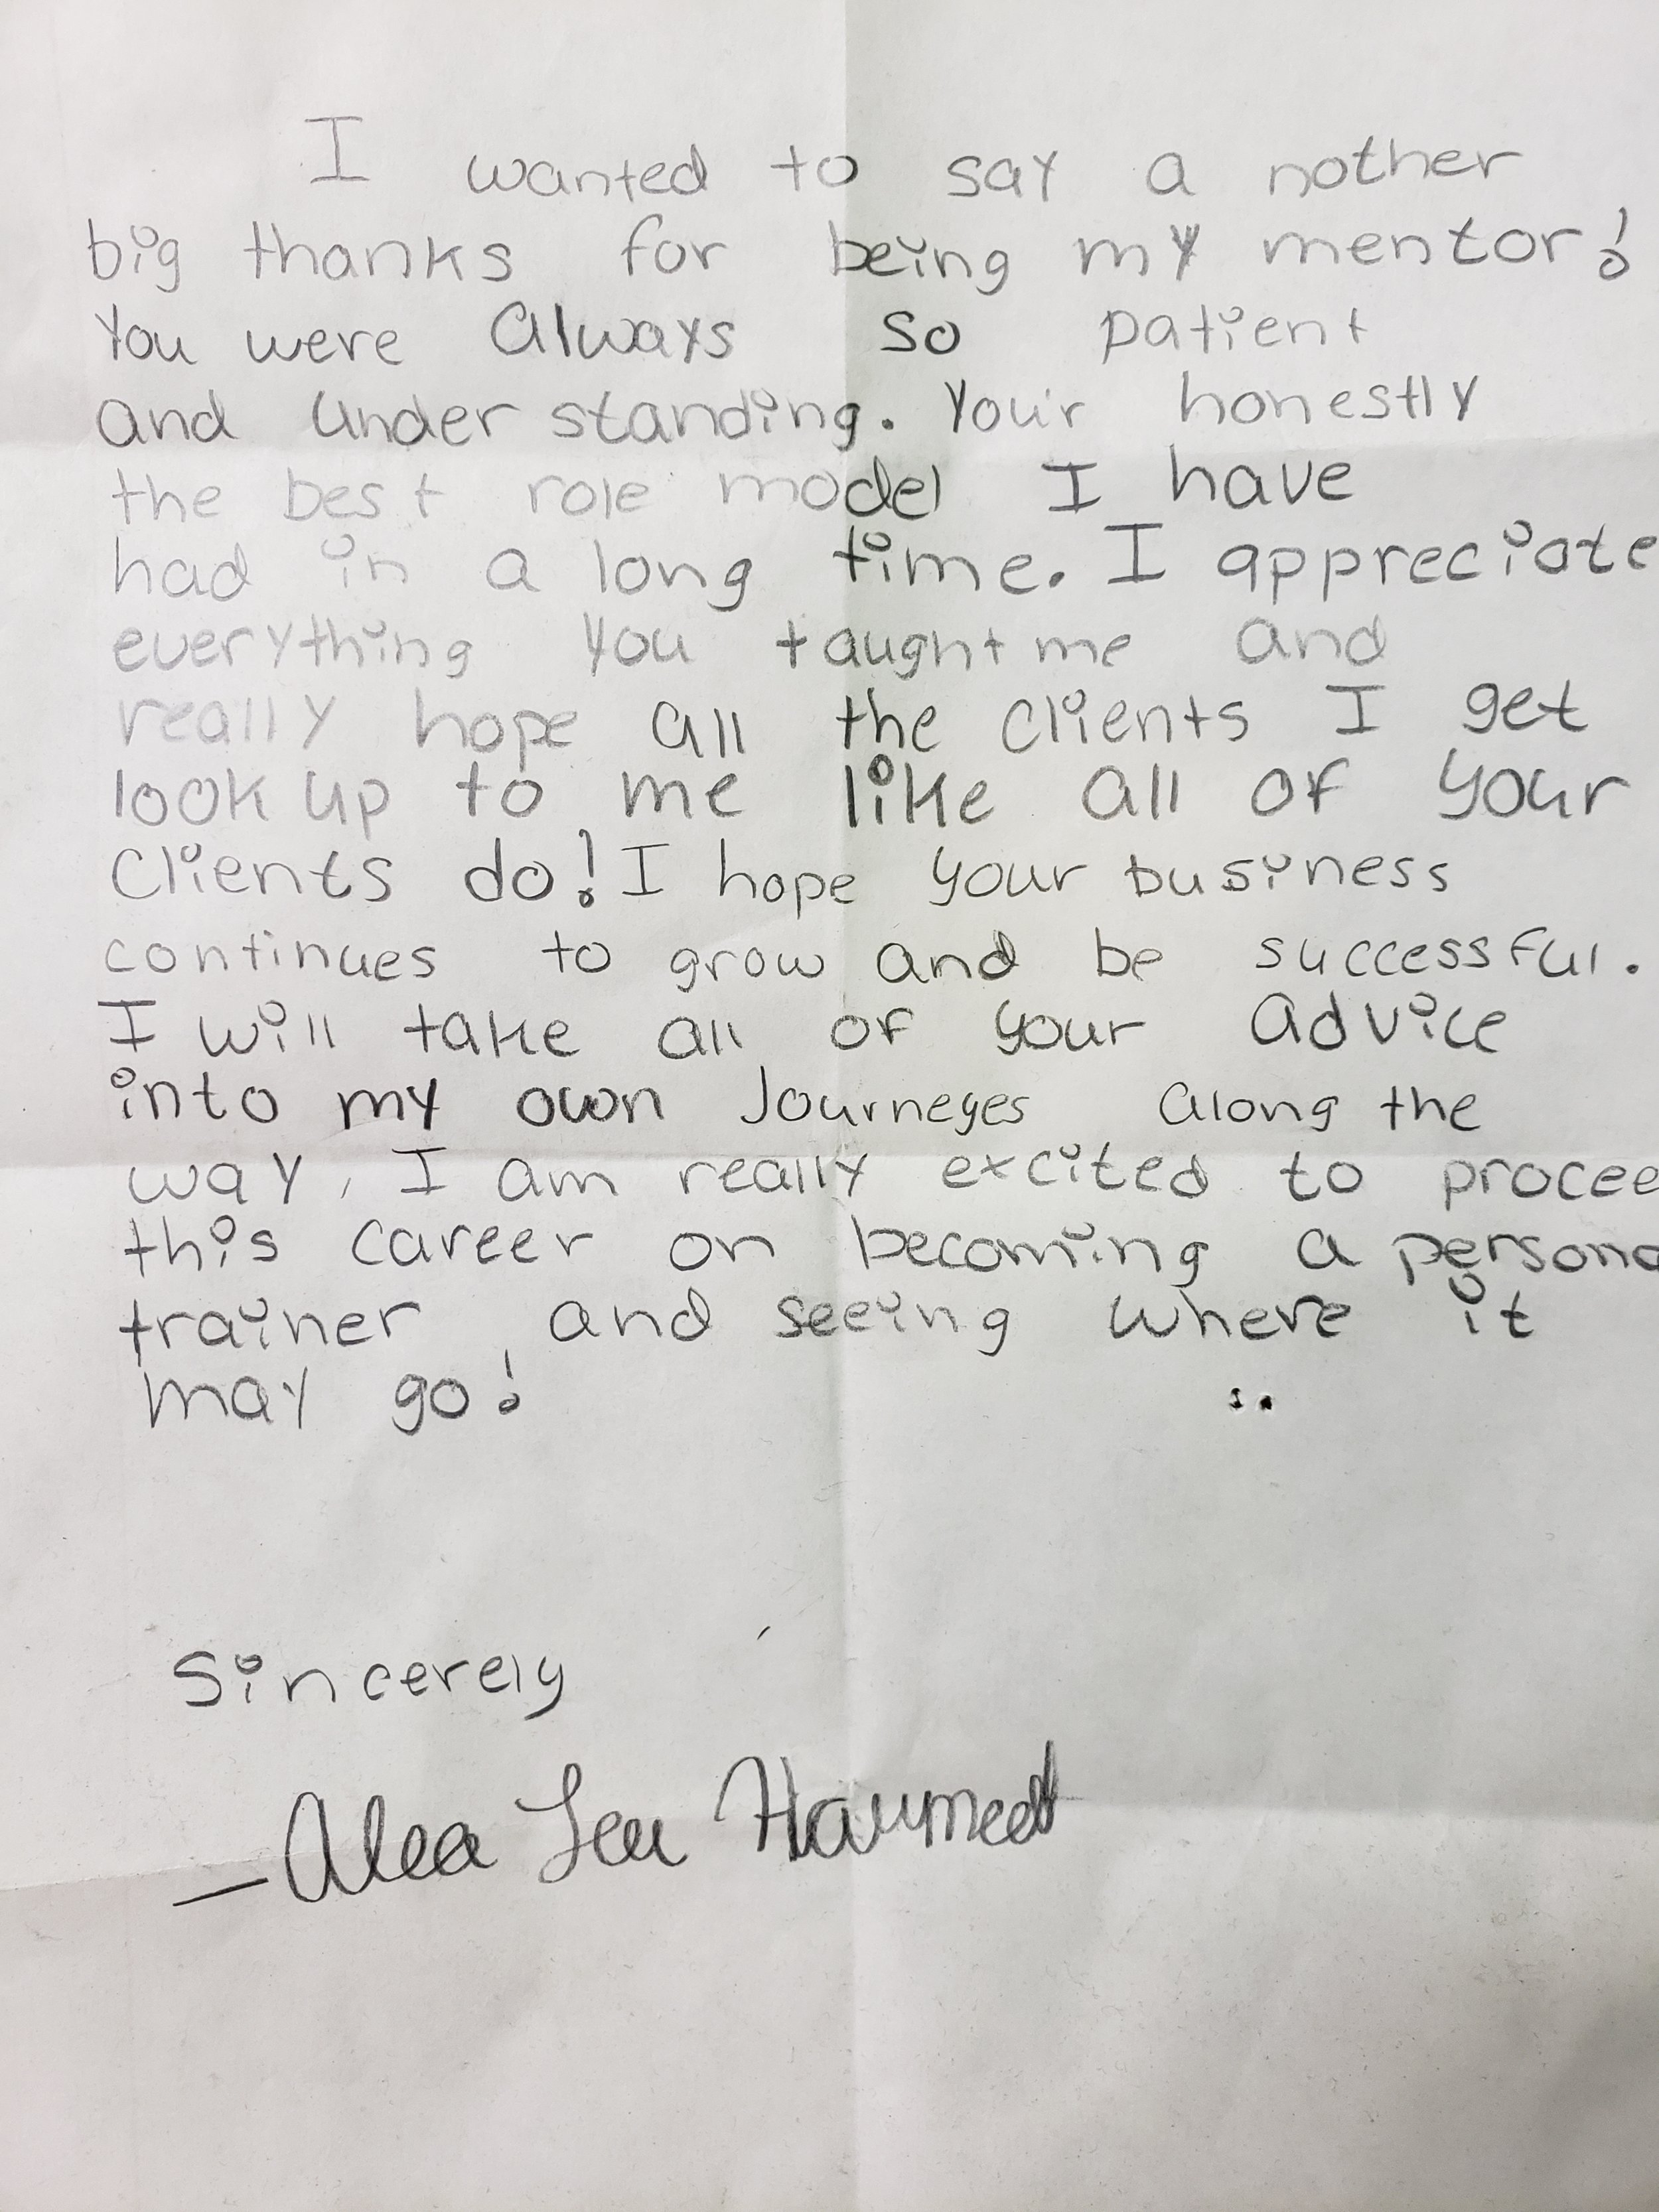 I wanted to say a nother
big thanks for being my mentor!
You were Always so patient
and understanding. You'r honestly
the best role model I have
had in a long time. I appreciate
everything you taught me and
really hope all the clients I get
look up to me like all of your
clients do! I hope your business
continues to grow and be successful.
I will take all of your advice
into my own Journeyes along the
way, I am really excited to procee
this career on becoming a persona
trainer and seeing where it
may go!
Sincerely
— Alea